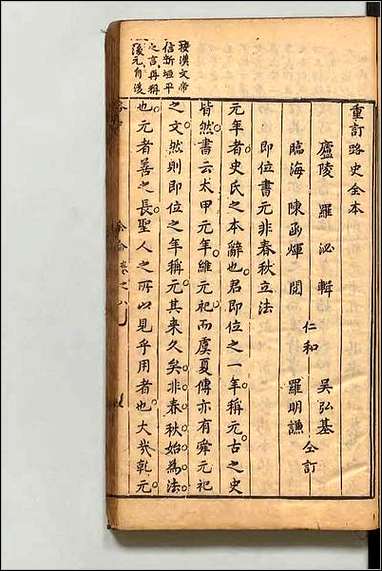 重訂路史全本
廬陵 羅泌 輯
仁和 吳弘基
臨海 陳函煇 閱
羅明謙 仝訂
即位書元非春秋立法
元年者史氏之本辭也君即位之一年稱元古之史
皆然書云太甲元年維元祀而虞夏傳亦有舜元祀
之文然則即位之年稱元其來久矣非春秋始為法
也元者善之長聖人之所以見乎用者也大哉乾元
按漢文帝
信新垣平
之言再稱
後元自後